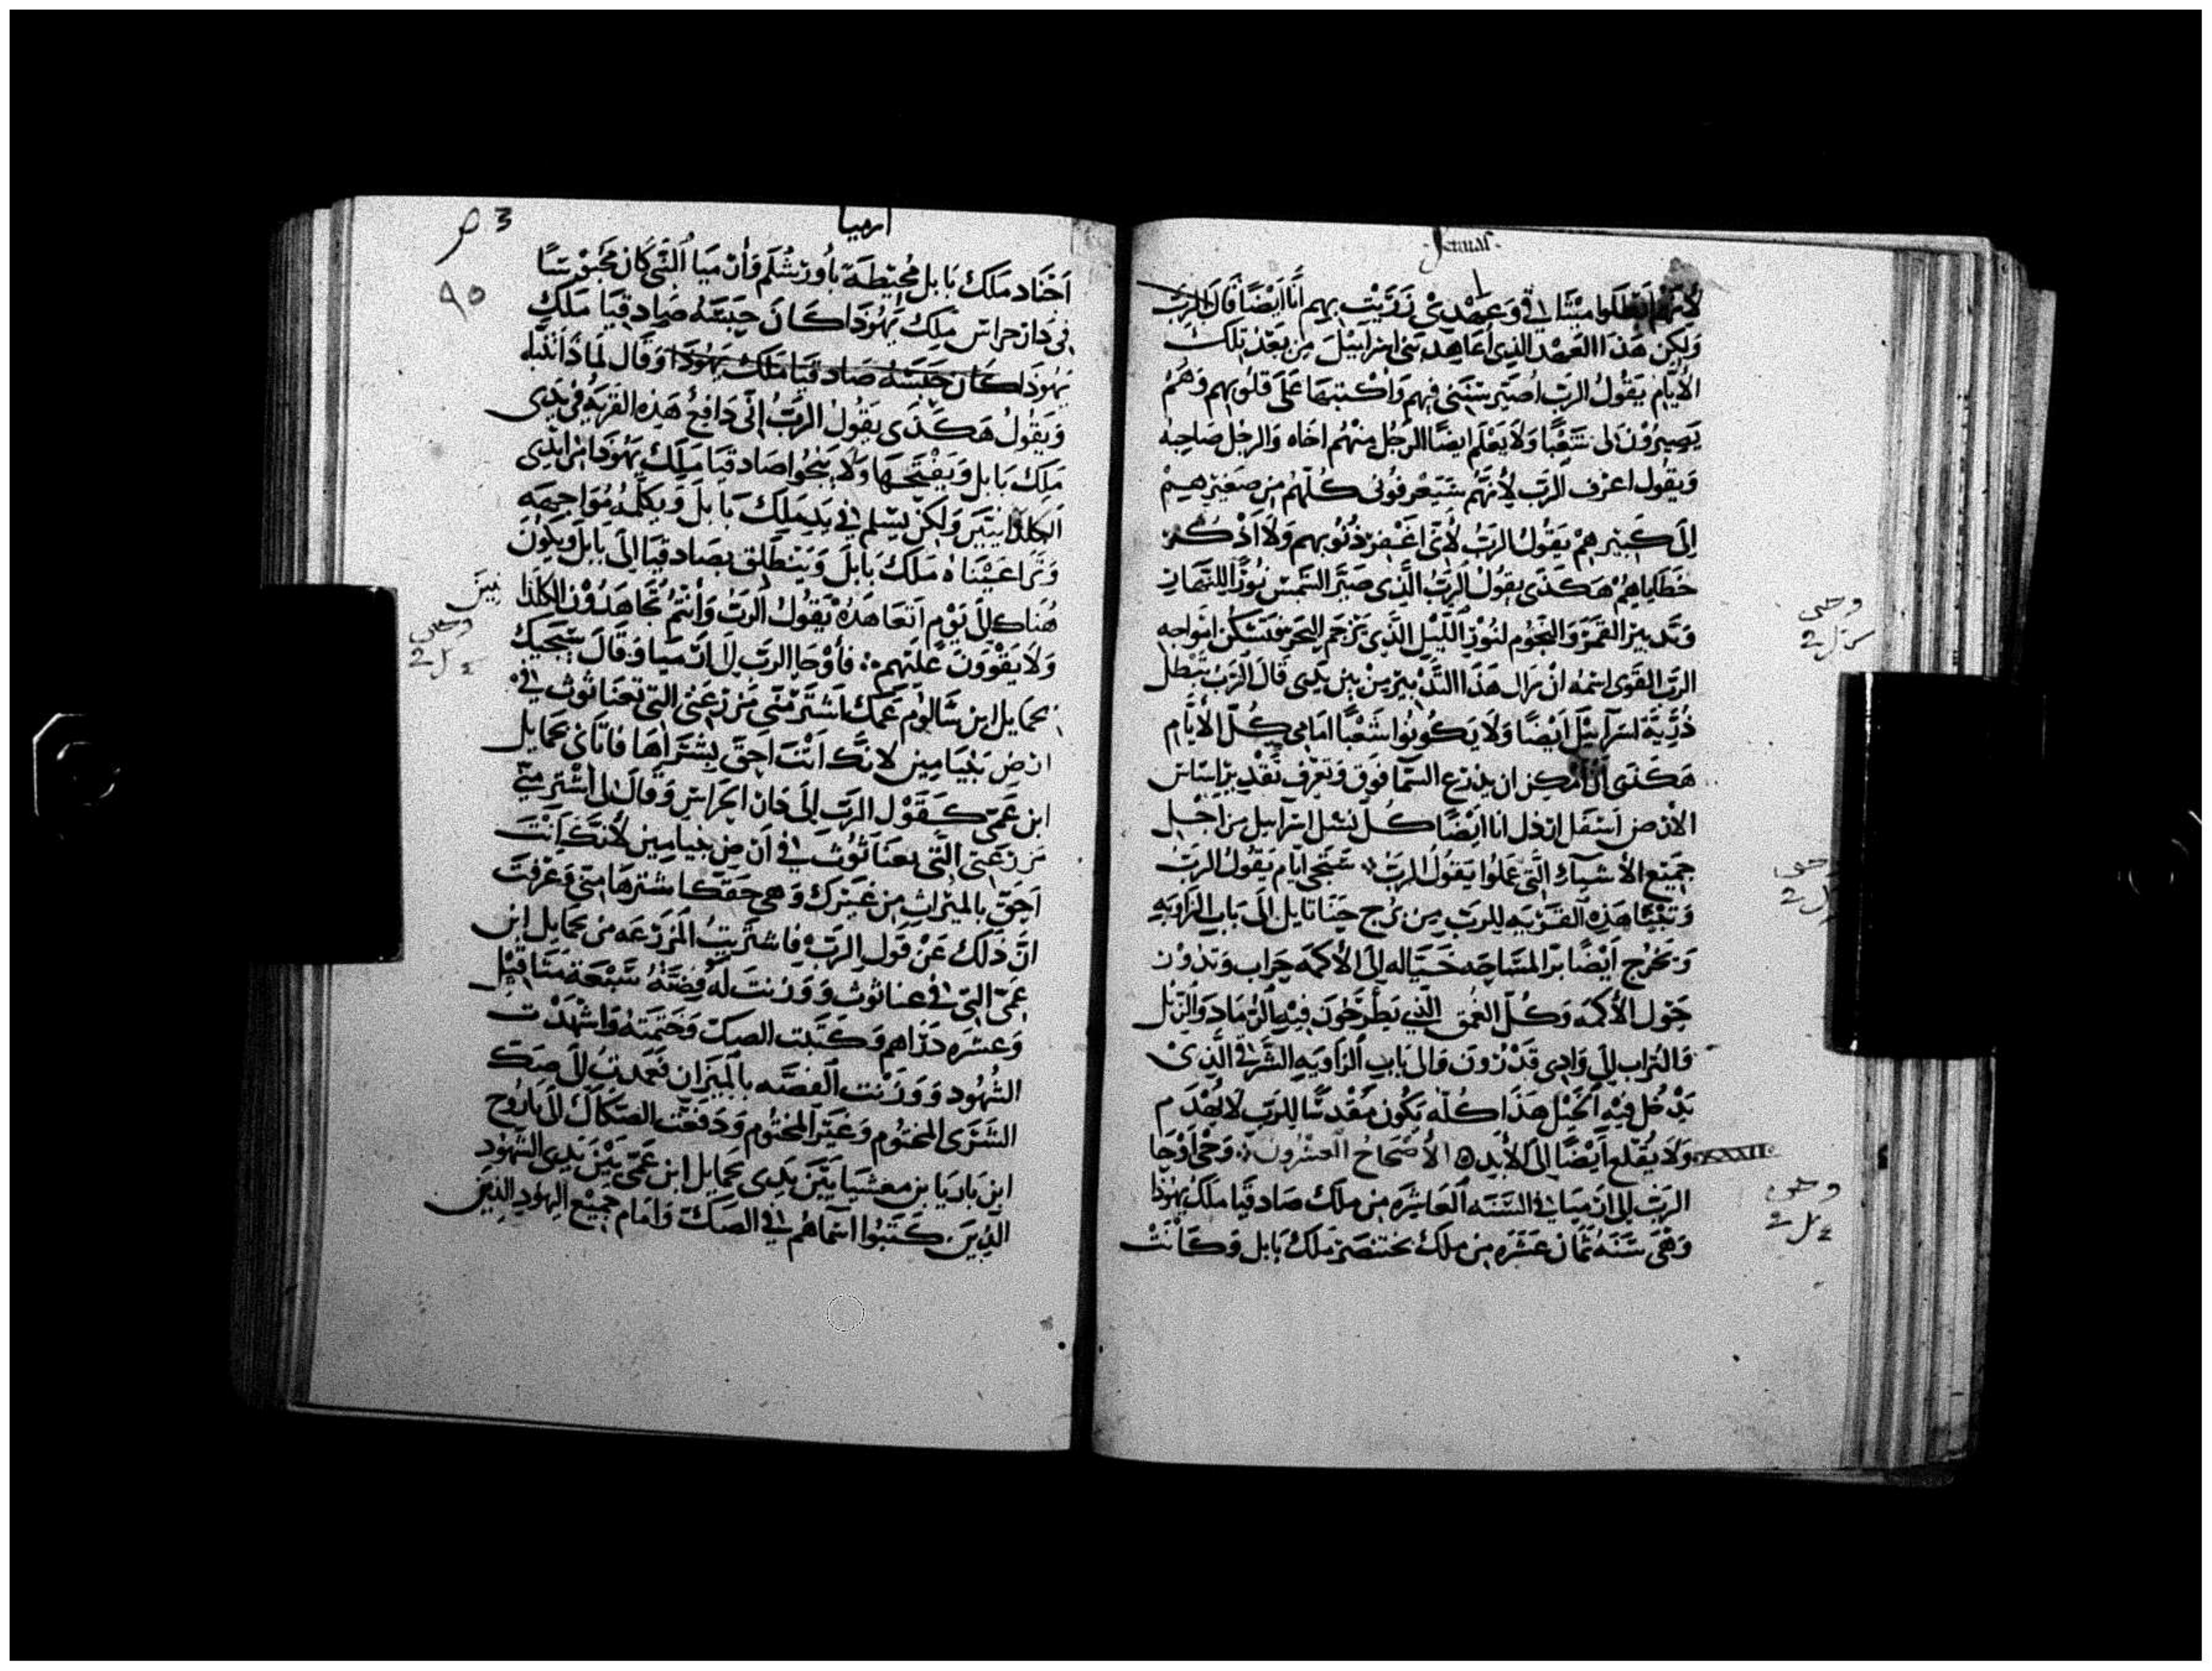 Jeremias
لأنهم ابطلوا ميثاقي وعهدي زريت بهم أنا أيضًا قال الرب
ولكن هذا العهد الذي أعاهد بني اسرآييل من بعد تلك
الأيام يقول الرب أصير سنني فيهم واكتبها على قلوبهم وهم
يصيرون لي شعبًا ولا يعلم ايضًا الرجل منهم اخاه والرجل صاحبه
ويقول اعرف الرب لأنهم سيعرفوني كلهم من صغيرهم
إلى كبيرهم يقول الرب لأني اغفر ذنوبهم ولا أذكر
خطاياهم هكذى يقول الرب الذي صير الشمس نورًا للنهار
وتدبير القمر والنجوم لنور الليل الذي يزجر البحر فتسكن امواجه
الرب القوى اسمه ان زال هذا التدبير من بين يدى قال الرب تبطل
ذرية اسرآييل أيضًا ولا يكونوا شعبًا امامي كل الأيام
هكذى ان امكن ان يذرع السما فوق وتعرف تقدير اساس
الارض اسفل ارذل انا ايضًا كل نسل اسرآييل من اجل
جميع الأشيآء التي عملوا يقول الرب ستجي ايام يقول الرب
وتبنا هذه القرية للرب من برج حنانايل الى باب الزاويه
وتخرج أيضًا برا المساحه حياله الى الأكمه جراب وتدور
حول الأكمه وكل العمق الذي يطرحون فيه الرماد والزبل
والتراب الى وادى قدرون والى باب الزاويه الشرقي الذي
يدخل فيه الخيل هذا كله يكون مقدسًا للرب لا يهدم
ولا يقلع أيضًا إلى الأبد الأصحاح العشرون وحى أوحا
XXXII
الرب الى ارميا في السنه العاشره من ملك صادقيا ملك يهوذا
وهى سنه ثمان عشره من ملك بختنصر ملك بابل وكانت
وحى
2
وحى
2
وحى
2
ارميا
3
٩٥
أجناد ملك بابل محيطة بأورشلم وأرميا النبي كان محبوسًا
في دار حراس ملك يهوذا كان حبسه صادقيا ملك
يهوذا كان حبسه صادقيا ملك يهوذا وقال لماذا تنبا
ويقول هكذى يقول الرب إني دافع هذه القريه في يدى
ملك بابل ويفتحها ولا ينجوا صادقيا ملك يهوذا من ايدى
الكلذانيين ولكن يسلم في يد ملك بابل ويكلمه مواجهه
وترا عيناه ملك بابل وينطلق بصادقيا الى بابل ويكون
هناك الى يوم اتعاهده يقول الرب وأنتم تجاهدون الكلذا
نيين
ولا يقوون عليهم فأوحا الرب الى ارميا وقال سيجيك
نحمايل ابن شالوم عمك اشتر مني مزرعتي التي بعناثوث في
ارض بنيامين لانك انت احق بشترآها فاتاني نحمايل
ابن عمي كقول الرب إلى دار الحراس وقال لي أشتر مني
مزرعتي التي بعناثوث في ارض بنيامين لأنك أنت
أحق بالميراث من غيرك وهي حقك اشترها مني وعرفت
ان ذلك عن قول الرب فاشتريت المزرعه من نحمايل ابن
عمي التي في عناثوث ووزنت له فضته سبعة مثاقيل
وعشره دراهم وكتبت الصك وختمته واشهدت
الشهود ووزنت الفضه بالميزان فعمدت الى صك
الشرى المختوم وغير المختوم ودفعت الصكاك الى باروخ
ابن باريا بن معشيا بين يدى نحمايل ابن عمي بين يدى الشهود
الذين كتبوا اسماهم في الصك وامام جميع اليهود الذين
وحى
2